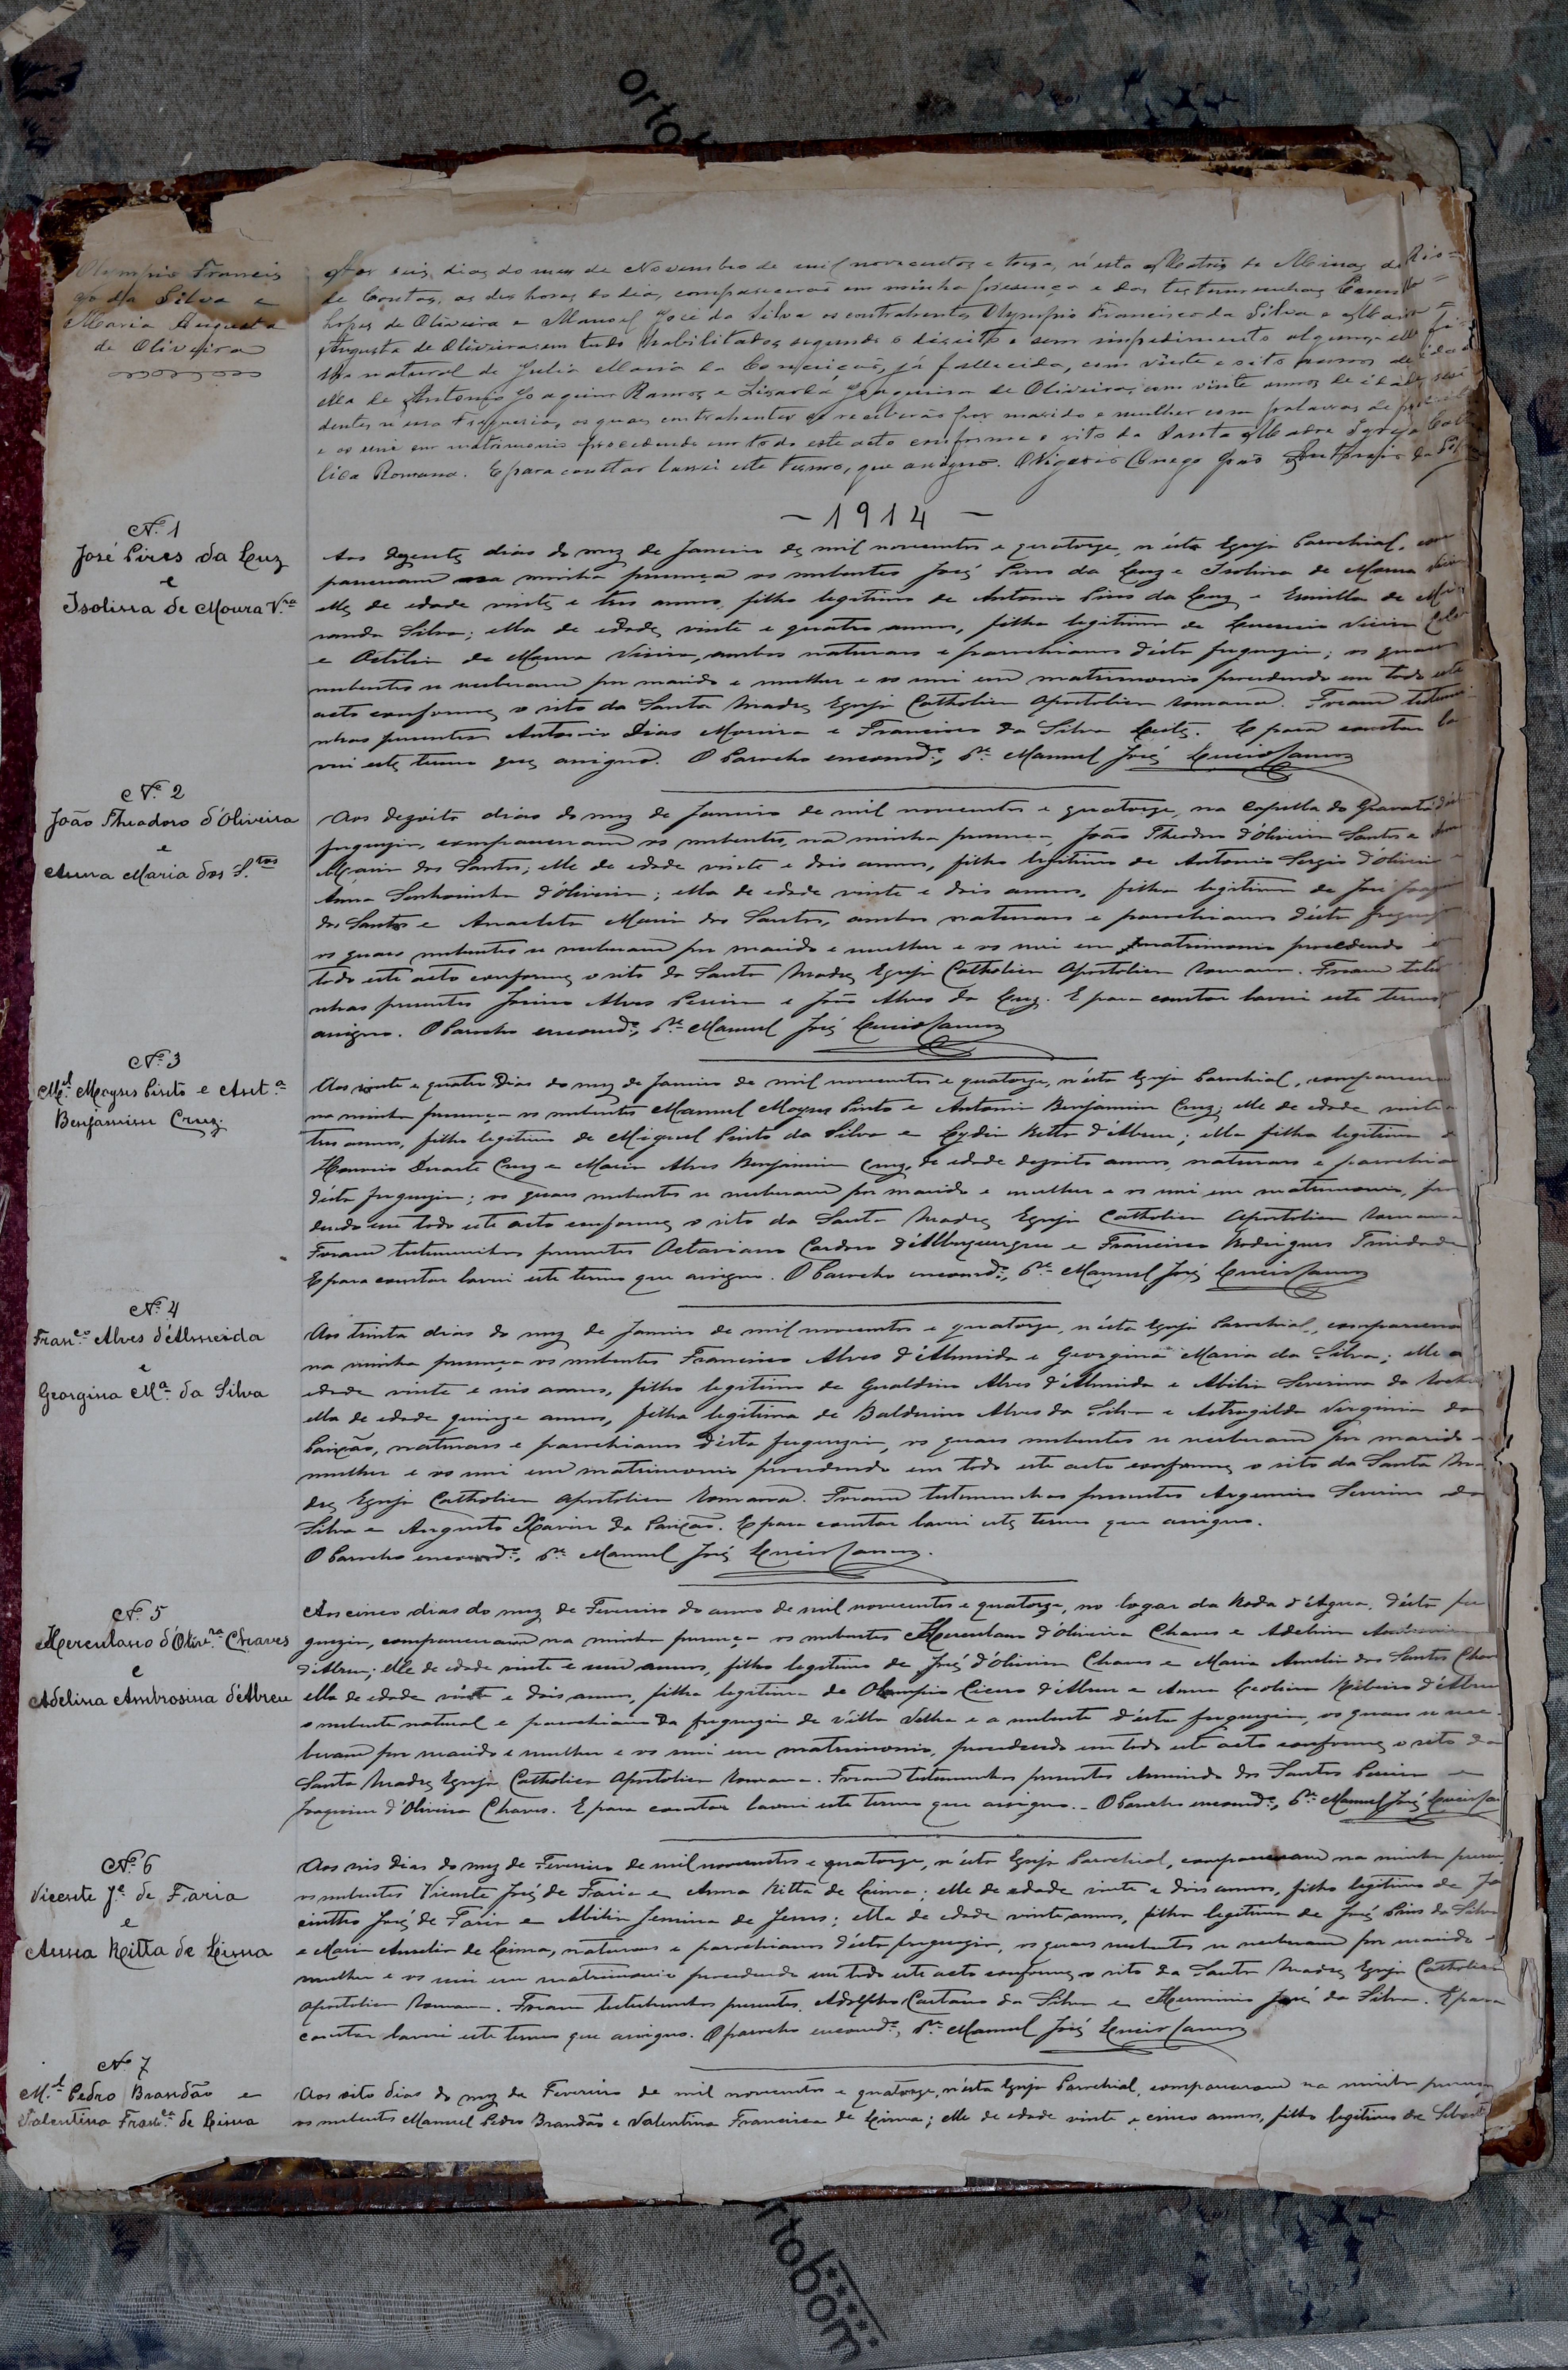 Olympio Francis
co da Silva e
Maria Augusta
de Oliveira
Aos seis dias do mez de Novembro de mil novecentos e treze, n'esta Matriz de Minas do Rio
de Contas, as dez horas do dia, comparecerão em minha presença e das testemunhas
Lopes de Oliveira e Manoel José da Silva os contrahentes Olympio Francisco da Silva e Maria
Augusta de Oliveira em tudo habilitados segundo o direito e sem impedimento algum, elle fi
lho natural de Julia Maria da Conceição, já fallecida, com vinte e oito annos de idade
ella de Antonio Joaquim Ramos e Joaquina de Oliveira, com vinte annos de idade
dentes n'essa Freguezia, os quaes contrahentes se receberão por marido e mulher com palavras de
e os uni em matrimonio procedendo em todo este acto conforme o rito da Santa Madre Igreja Catho
lica Romana. E para constar lavrei este termo, que assigno. O Vigario Conego
- 1914 -
Nº 1
José Pires da Luz
e
Isolina de Moura Vra
Aos dias do mez de Janeiro de mil novecentos e quatorze, n'esta Egreja Parochial, com
pareceram na minha presença os nubentes José Pires da Luz e Isolina de Moura
elle de edade vinte e tres annos, filho legitimo de Antonio Pires da Luz e Ermilla de
randa Silva; ella de edade vinte e quatro annos, filha legitima de Vieira
e de Moura Vieira, ambos naturaes e parochianos d'esta freguezia; os quaes
nubentes se receberam por marido e mulher e os uni em matrimonio procedendo em todo este
acto conforme o rito da Santa Madre Egreja Catholica Apostolica Romana. Foram testemu
nhas presentes Antonio Dias Moreira e Francisco da Silva Leite. E para constar la
vrei este termo que assigno. O Parocho encomdo, Pe Manuel José
Nº 2
João Theadoro d'Oliveira
e
Anna Maria dos Stos
Aos dezoito dias do mez de Janeiro de mil novecentos e quatorze, na Capella do Gravatá d'esta
freguezia, compareceram os nubentes, na minha presença João Theodoro d'Oliveira Santos e Anna
Maria dos Santos; elle de edade vinte e dois annos, filho legitimo de Antonio Sergio d'Oliveira
Anna Senhorinha d'Oliveira; ella de edade vinte e dois annos, filha legitima de José Joaquim
dos Santos e Anacleta Maria dos Santos, ambos naturaes e parochianos d'esta freguezia
os quaes nubentes se receberam por marido e mulher e os uni em matrimonio procedendo
todo este acto conforme o rito da Santa Madre Egreja Catholica Apostolica Romana. Foram testemu
nhas presentes Alves Pereira e João Alves da Cruz. E para constar lavrei este termo
assigno. O Parocho encomdo, Pe Manuel José
Nº 3
Mel Moyses Pinto e Anta
Benjamim Cruz.
Aos vinte e quatro dias do mez de Janeiro de mil novecentos e quatorze, n'esta Egreja Parochial, compareceram
na minha presença os nubentes Manuel Moyses Pinto e Antonia Benjamim Cruz; elle de edade vinte e
tres annos, filho legitimo de Miguel Pinto da Silva e Lydia Ritta d'Abreu; ella filha legitima de
Duarte Cruz e Maria Alves Benjamim Cruz, de edade dezoito annos, naturaes e parochia
d'esta freguezia; os quaes nubentes se receberam por marido e mulher e os uni em matrimonio, pro
dendo em todo este acto conforme o rito da Santa Madre Egreja Catholica Apostolica Romana
Foram testemunhas presentes Octaviano Cardoso d'Albuquerque e Francisco Rodrigues Trindade
E para constar lavrei este termo que assigno. O Parocho encomdo, Pe Manuel José
Nº 4
Franco Alves d'Almeida
e
Georgina Ma da Silva
Aos trinta dias do mez de Janeiro de mil novecentos e quatorze, n'esta Egreja Parochial, compareceram
na minha presença os nubentes Francisco Alves d'Almeida e Georgina Maria da Silva; elle de
edade vinte e seis annos, filho legitimo de Gualdino Alves d'Almeida e Abilia Severina da Rocha
ella de edade quinze annos, filha legitima de Balduino Alves da Silva e Astrogilda Virginia da
Paixão, naturaes e parochianos d'esta freguezia, os quaes nubentes se receberam por marido e
mulher e os uni em matrimonio procedendo em todo este acto conforme o rito da Santa Ma
dre Egreja Catholica Apostolica Romana. Foram testemunhas presentes Argemiro Severino da
Silva e Augusto Xavier da Paixão. E para constar lavrei este termo que assigno.
O Parocho encomdo, Pe Manuel José
Nº 5
Herculano d'Olivra Chaves
e
Adelina Ambrosina d'Abreu
Aos cinco dias do mez de Fevereiro do anno de mil novecentos e quatorze, no logar da Roda d'Agua, d'esta fre
guezia, compareceram na minha presença os nubentes Herculano d'Oliveira Chaves e Adelina Ambrosina
d'Abreu; elle de edade vinte e annos, filho legitimo de José d'Oliveira Chaves e Maria Amelia dos Santos Chaves
ella de edade vinte e dois annos, filha legitima de Olympio Cicero d'Abreu e Anna Leolina Ribeiro d'Abreu
o nubente natural e parochiano da freguezia de Villa Velha e a nubente d'esta freguezia, os quaes se rece
beram por marido e mulher e os uni em matrimonio, procedendo em todo este acto conforme o rito da
Santa Madre Egreja Catholica Apostolica Romana. Foram testemunhas presentes Arminda dos Santos Pereira e
Joaquim d'Oliveira Chaves. E para constar lavrei este termo que assigno. - O Parocho encomdo, Pe Manuel José
Nº 6
Vicente Je de Faria
e
Anna Ritta de Lima
Aos seis dias do mez de Fevereiro de mil novecentos e quatorze, n'esta Egreja Parochial, compareceram na minha presen
os nubentes Vicente José de Faria e Anna Ritta de Lima; elle de edade vinte e dois annos, filho legitimo de Ja
cintho José de Faria e Abilia Jesuina de Jesus; ella de edade vinte annos, filha legitima de José Pires da Silva
e Maria Aurelia de Lima, naturaes e parochianos d'esta freguezia, os quaes nubentes se receberam por marido e
mulher e os uni em matrimonio procedendo em todo este acto conforme o rito da Santa Madre Egreja Catholica
Apostolica Romana. Foram testemunhas presentes, Adolpho Caetano da Silva e Herminio José da Silva. E para
constar lavrei este termo que assigno. O parocho encomdo, Pe Manuel José
Nº 7
Mel Pedro Brandão e
Valentina Franca de Lima
Aos oito dias do mez de Fevereiro de mil novecentos e quatorze, n'esta Egreja Parochial, compareceram na minha presença
os nubentes Manuel Pedro Brandão e Valentina Francisca de Lima; elle de edade vinte e cinco annos, filho legitimo de
ortobom